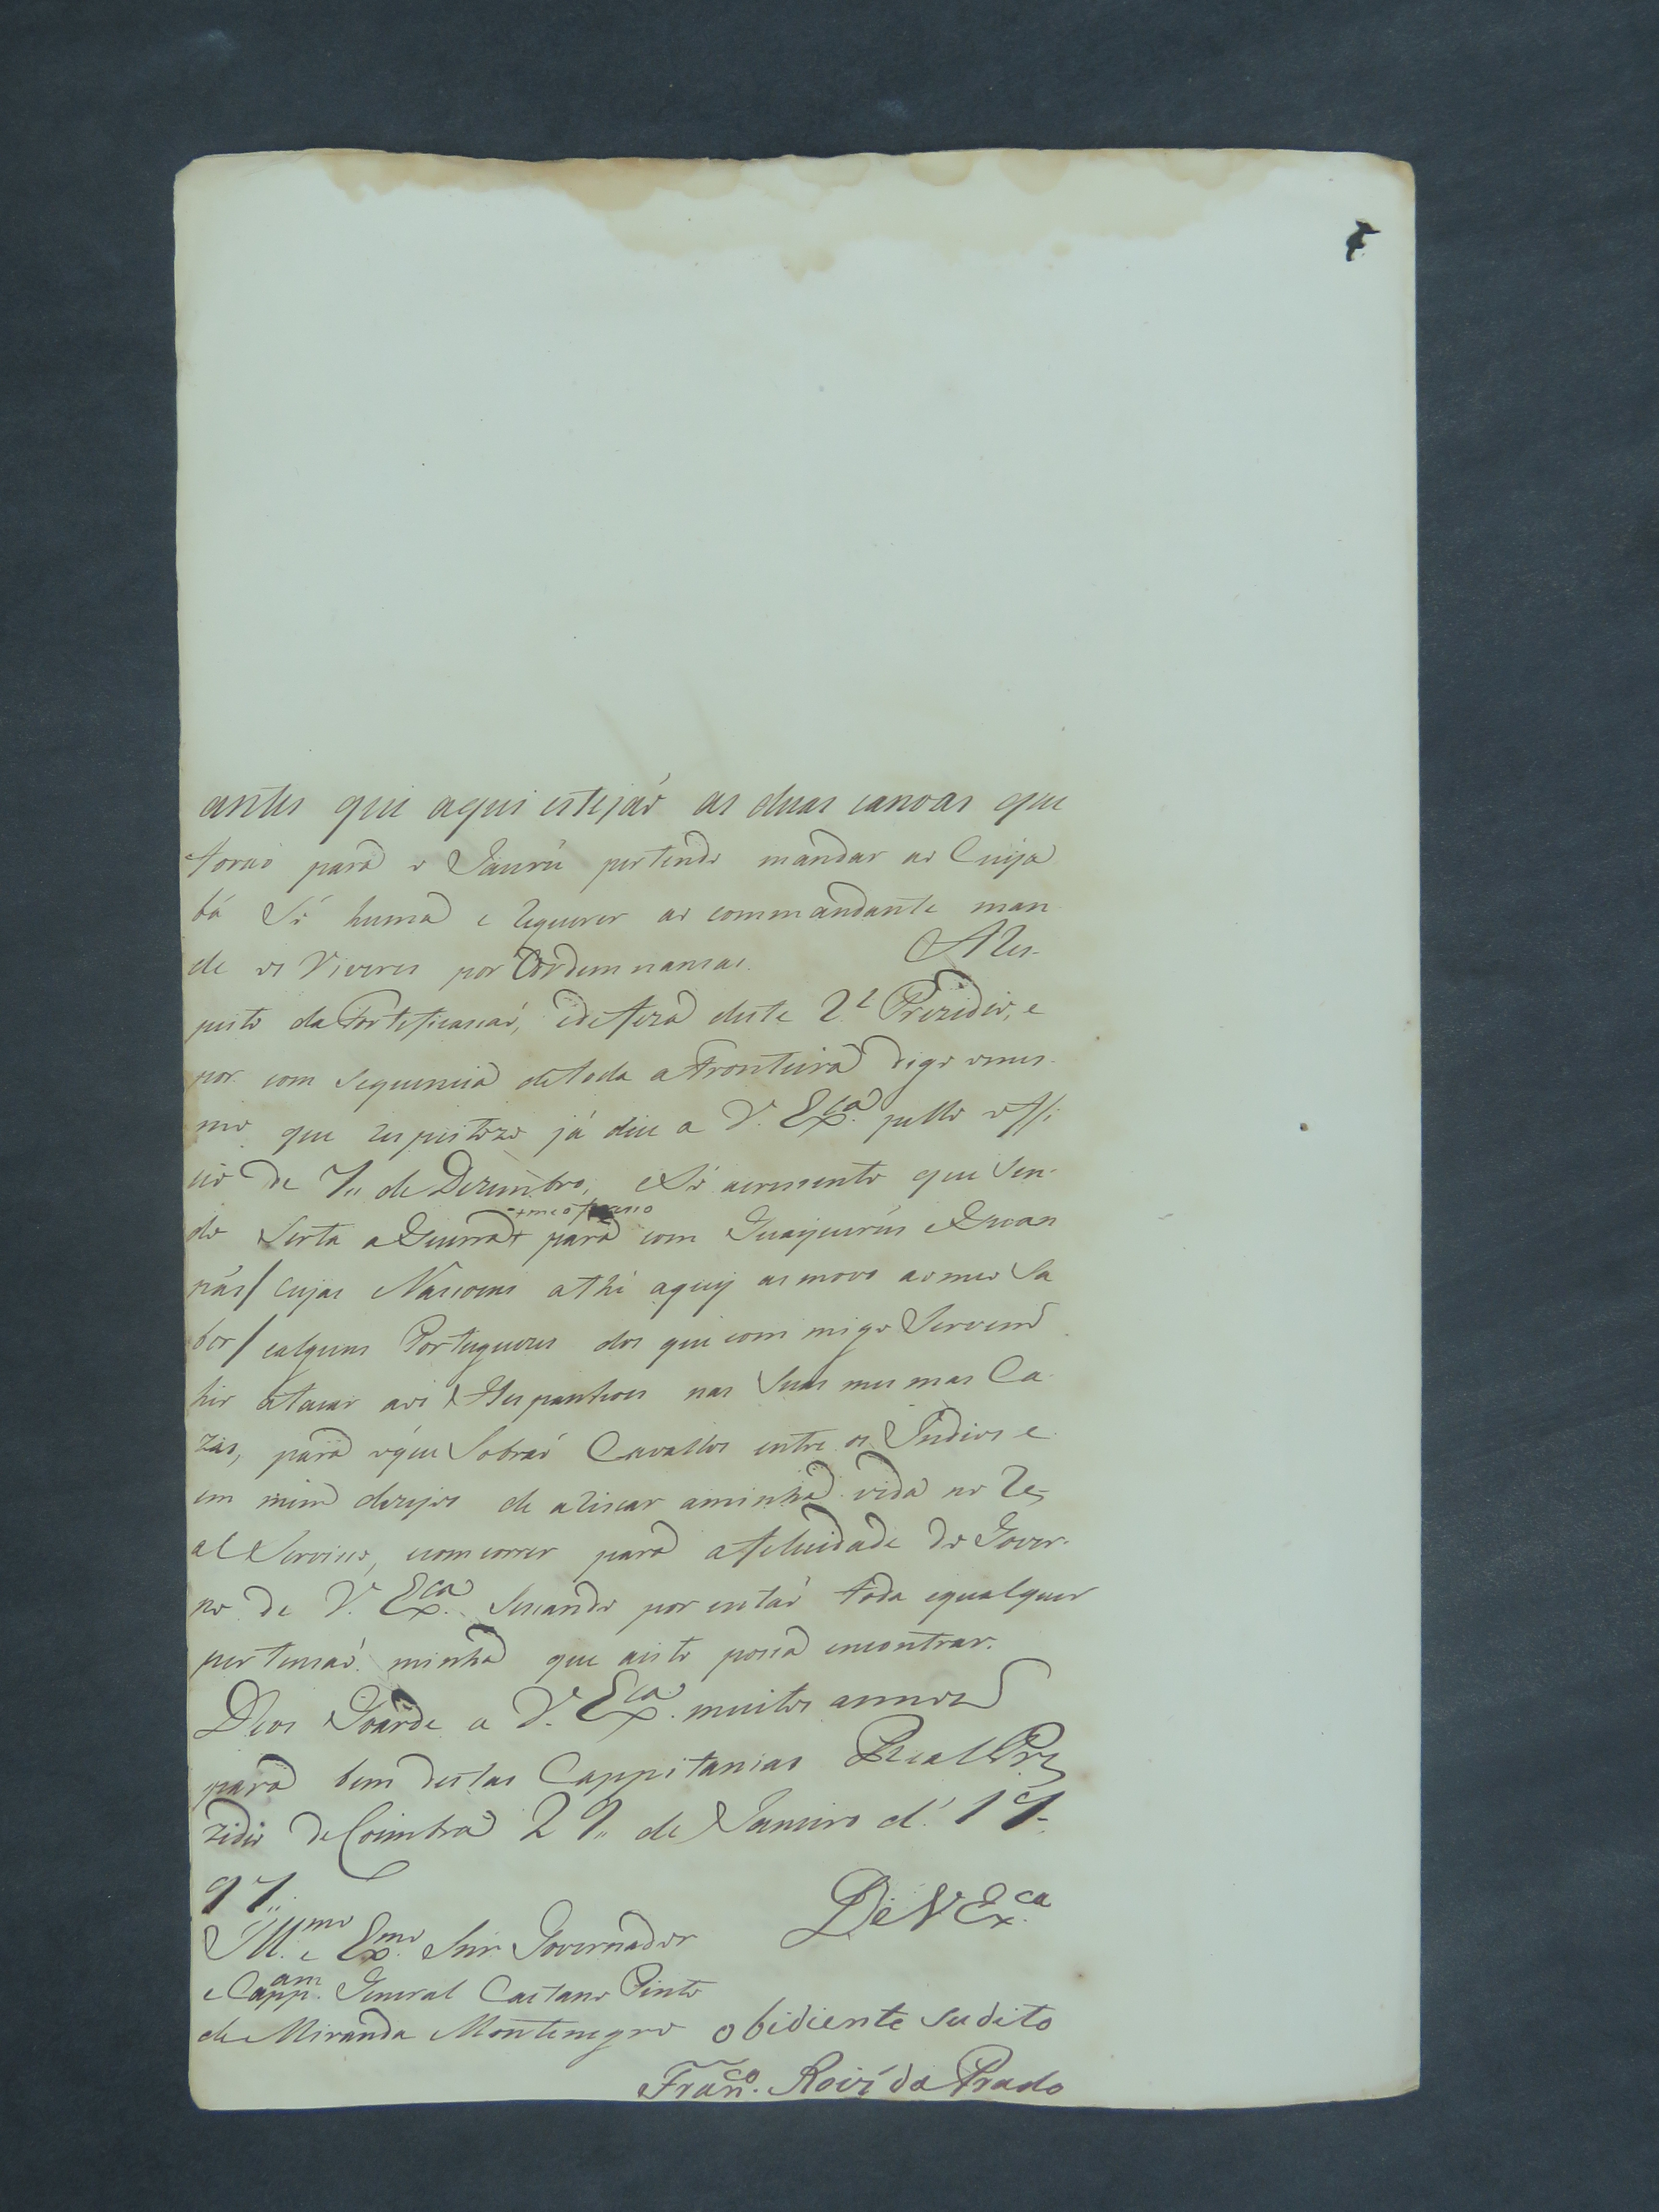 antes que aqui estejaõ as duas canoas que
foraõ para o Jaurú pertendo mandar ao Cuija
bá Só huma e Requerer ao commandante man
de os Viveres por Ordemnansas. ARes-
peito da Forteficasaõ, edefeza deste Rl Prezidio, e
por com sequencia detoda aFronteira digo omes-
mo que respeitozo já dice a V. Exca. pello offi
cio de 7,, de Dezembro, eSó acresento que Sen-
do Serta aGuerra para com Guaycurús eGuan
nás/ cujas Nascoens athé aquy as movo aomeo Sa
ber/ ealguns Portuguezes dos que com migo Servem
hir atacar aos Hespanhoes nas Suas mesmas Ca-
zas, para oque Sobraõ Cavallos entre os Indios e
em mim dezejos de aRiscar aminha vida no Re-
al Servico, ecomcorrer para afelicidade do Gover-
no de V. Exca. Secando por entaõ toda equalquer
pertensaõ minha que aisto possa encontrar.
Deos Goarde a V. Exca. muitos annos
para bem destas Cappitanias Real Pre
zidio deCoimbra 29,, de Janeiro d' 17-
97,,
De V Exca.
Illmo. e Exmo. Snr. Governador
e Cappam. General Caetano Pinto
de Miranda Montenegro obidiente sudito
Franco. Roiz do Prado